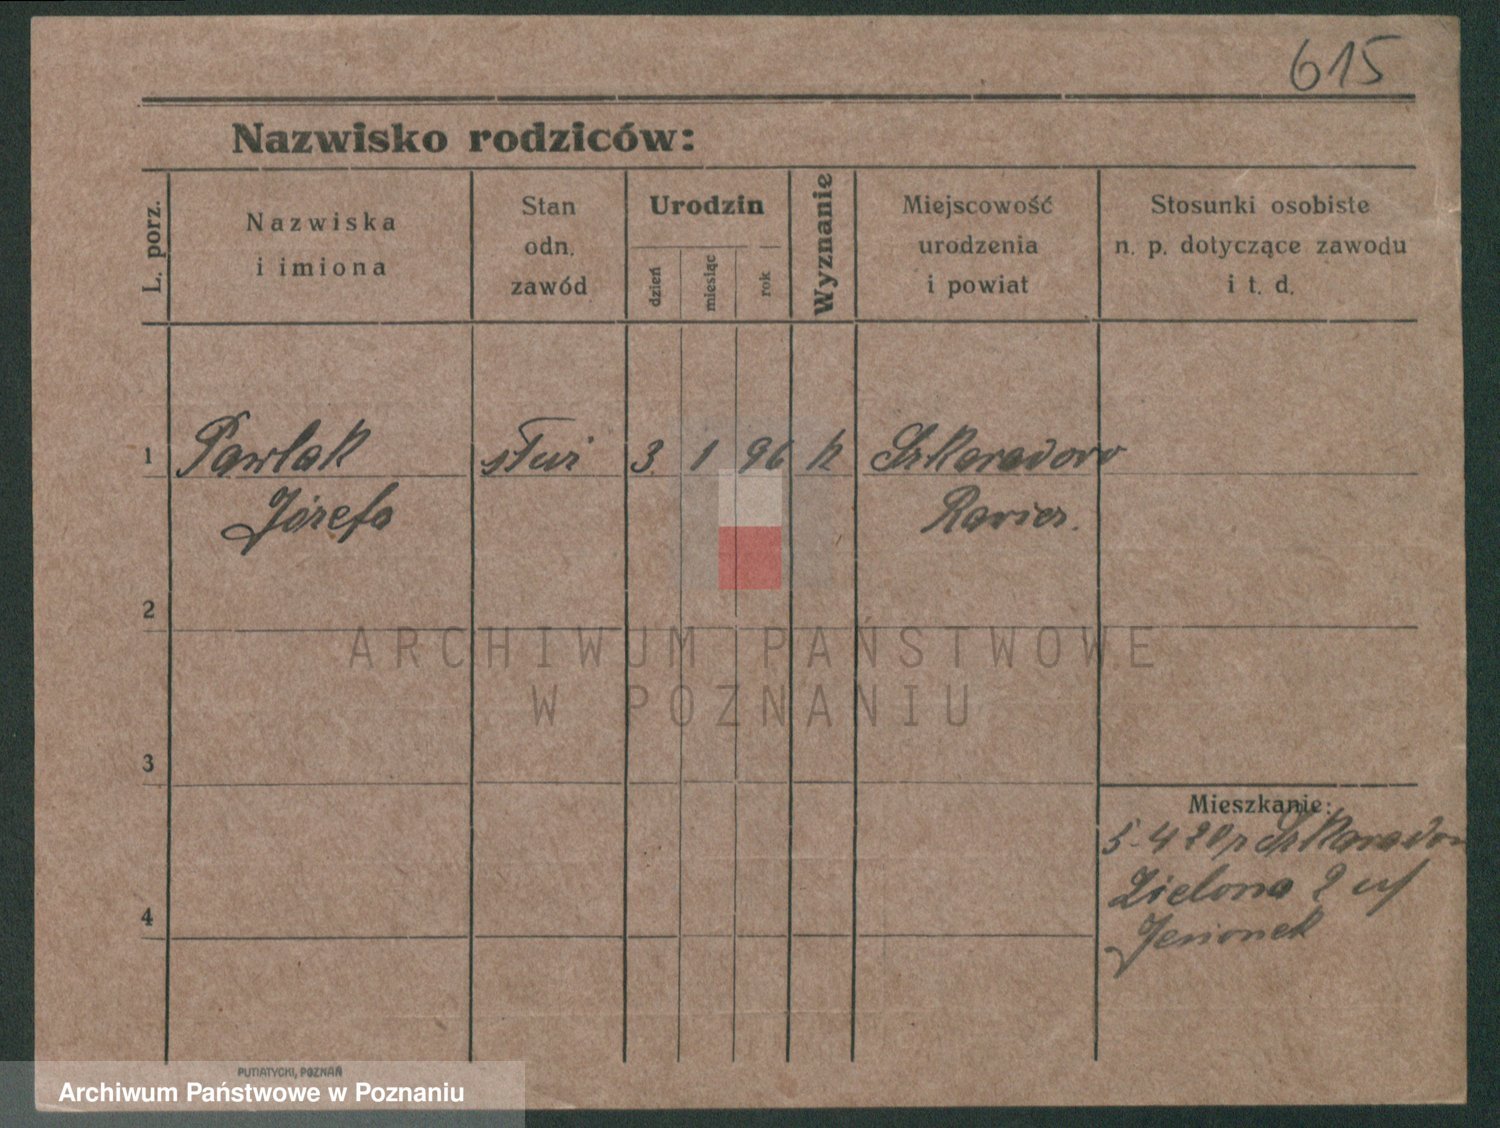 615
Nazwisko rodziców:
L. porz.
Nazwiska
i imiona
Stan
odn.
zawód
Urodzin
dzień
miesiąc
rok
Wyznanie
Miejscowość
urodzenia
i powiat
Stosunki osobiste
n. p. dotyczące zawodu
i t. d.
1 Pawlak służ 3 1 96 k Szkaradowo
Józefa Rawicz.
2
ARCHIWUM PAŃSTWOWE
W POZNANIU
3
Mieszkanie:
5-4 20 Szkaradow
Zielona 2
4
Jesionek
PUTIATYCKI, POZNAŃ
Archiwum Państwowe w Poznaniu